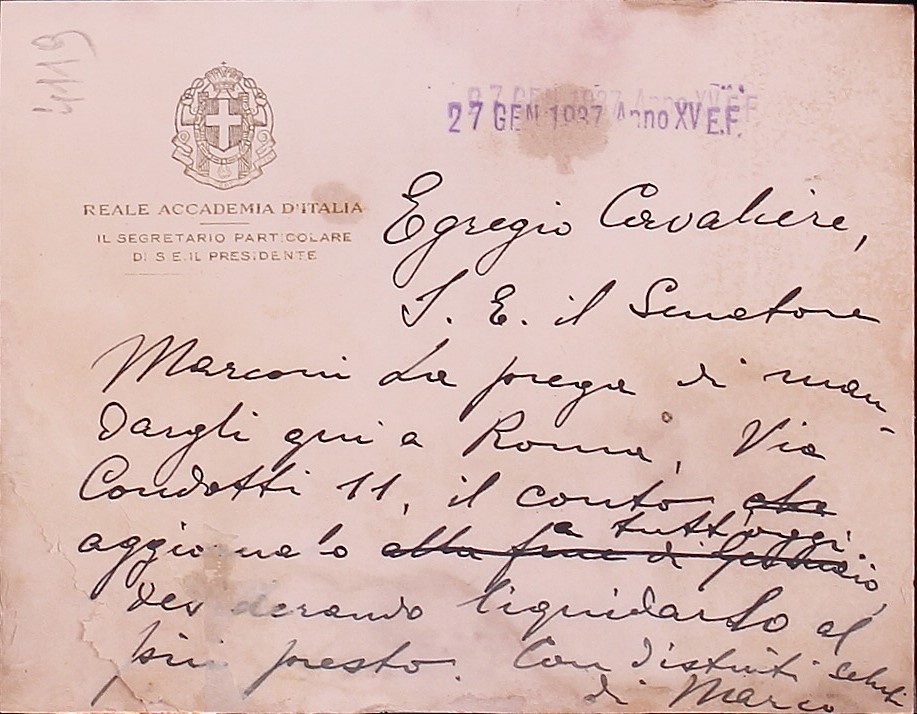 4119
27 GEN 1937 Anno XV E.F.
REALE ACCADEMIA D'ITALIA
IL SEGRETARIO PARTICOLARE
DI S.E. IL PRESIDENTE
Egregio Cavaliere,
S. E. il Senatore
Marconi La prega di man-
dargli qui a Roma, Via
Condotti 11, il conto che
aggiornato alla fine di Gennaio,
a tutt'oggi
desiderando liquidarlo al
più presto. Con distinti saluti
di Marco